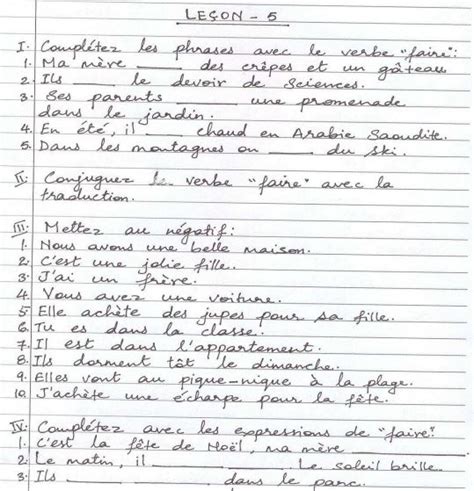 LEÇON - 5
I. Complétez les phrases avec le verbe "faire":
1. Ma mère ______ des crêpes et un gâteau
2. Ils ______ le devoir de Sciences.
3. Ses parents ______ une promenade
dans le jardin.
4. En été, il ______ chaud en Arabie Saoudite.
5. Dans les montagnes on ______ du ski.
II. Conjuguez le verbe "faire" avec la
traduction.
III. Mettez au négatif:
1. Nous avons une belle maison.
2. C'est une jolie fille.
3. J'ai un frère.
4. Vous avez une voiture.
5. Elle achète des jupes pour sa fille.
6. Tu es dans la classe.
7. Il est dans l'appartement.
8. Ils dorment tôt le dimanche.
9. Elles vont au pique-nique à la plage.
10. J'achète une écharpe pour la fête.
IV. Complétez avec les expressions de "faire":
1. C'est la fête de Noël, ma mère ______
2. Le matin, il ______. Le soleil brille.
3. Ils ______ dans le parc.